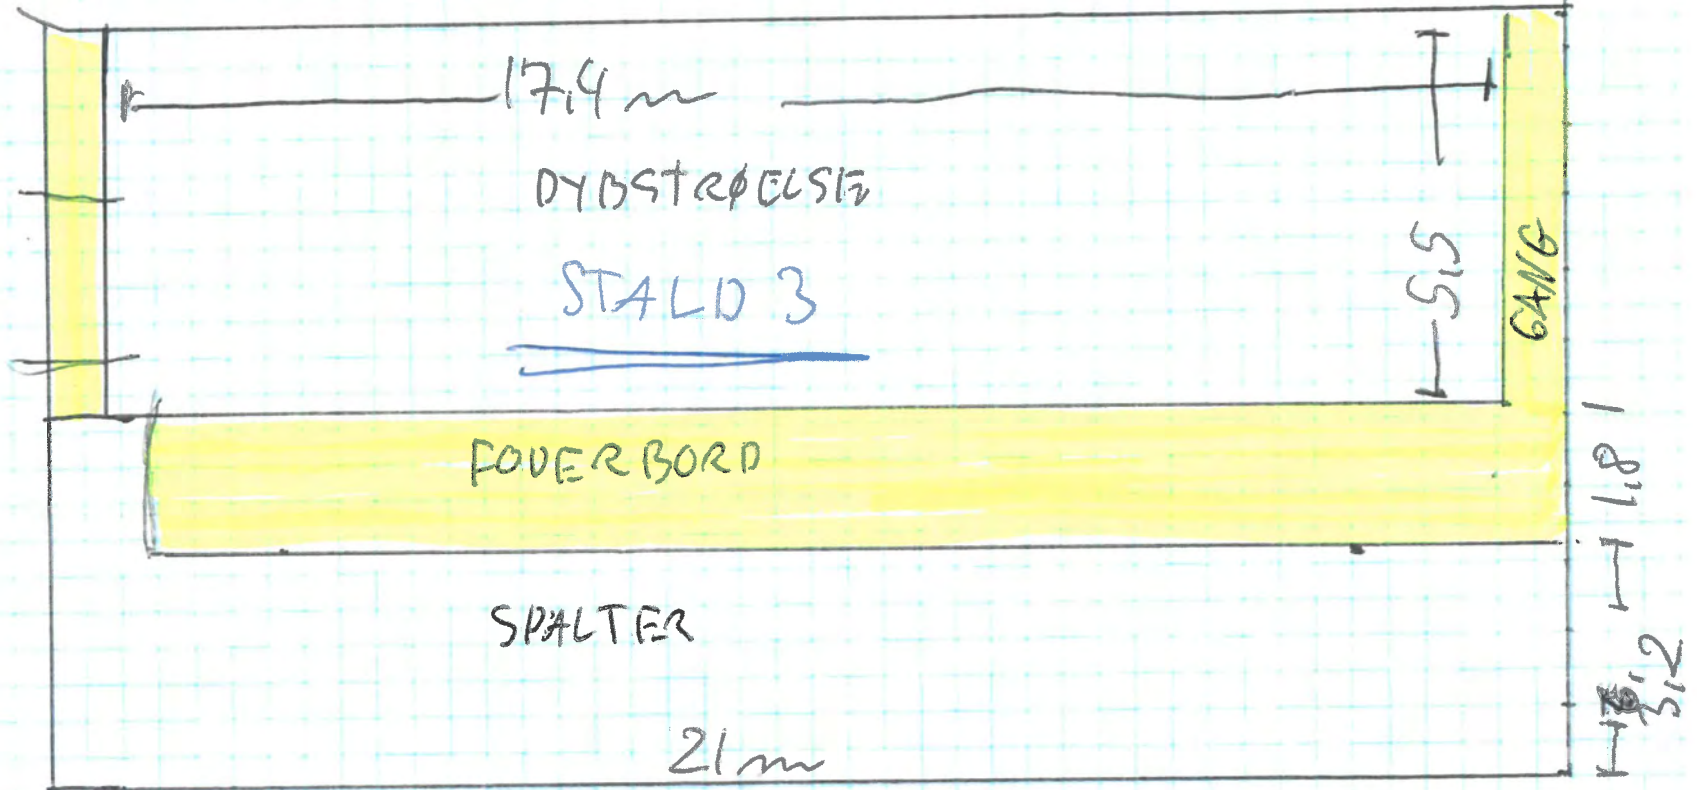 17,4 m
DYBSTRØELSE
STALD 3
5,5
GANG
FODERBORD
1,8
SPALTER
3,2
21 m